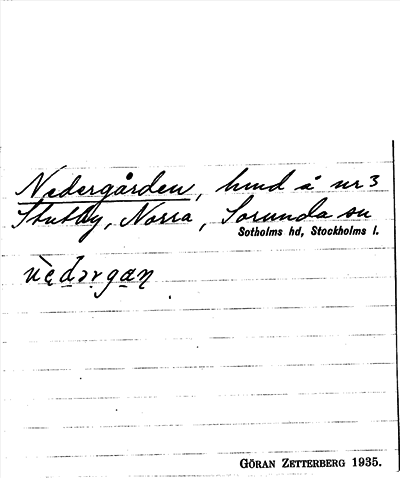 Nedergården, hmd å nr 3
Stutby, Norra, Sorunda sn
Sotholms hd, Stockholms l.
GÖRAN ZETTERBERG 1935.